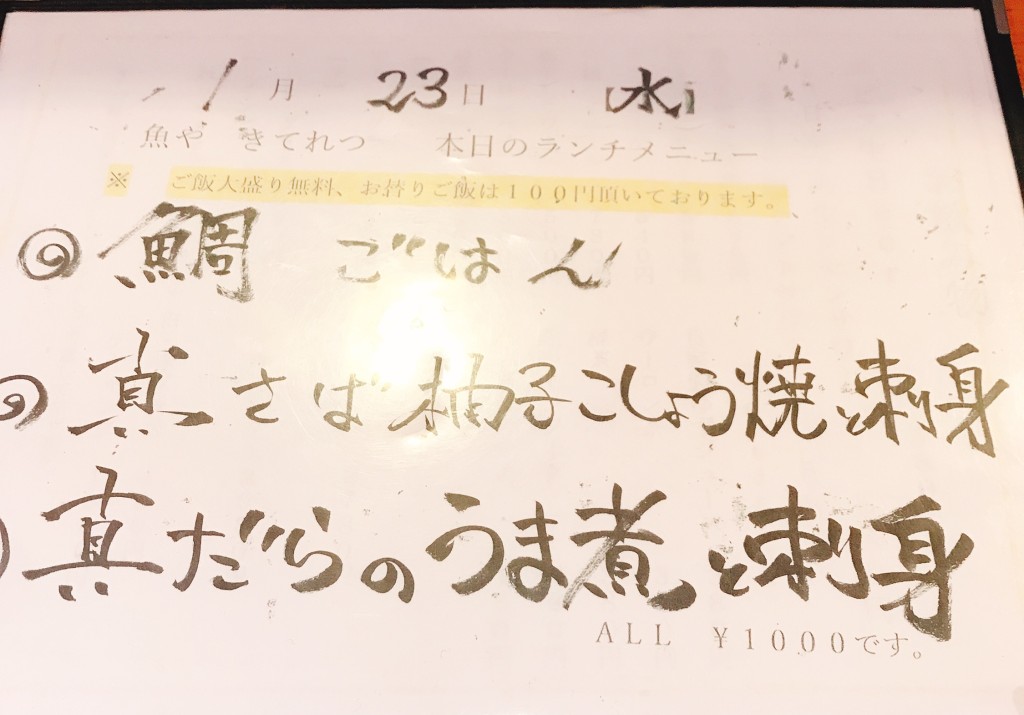 1月 23日 【水】
魚や きてれつ 本日のランチメニュー
※ ご飯大盛り無料、お替りご飯は100円頂いております。
◎ 鯛 ごはん
◎ 真さば柚子こしょう焼と刺身
真だらのうま煮と刺身
ALL ¥1000です。